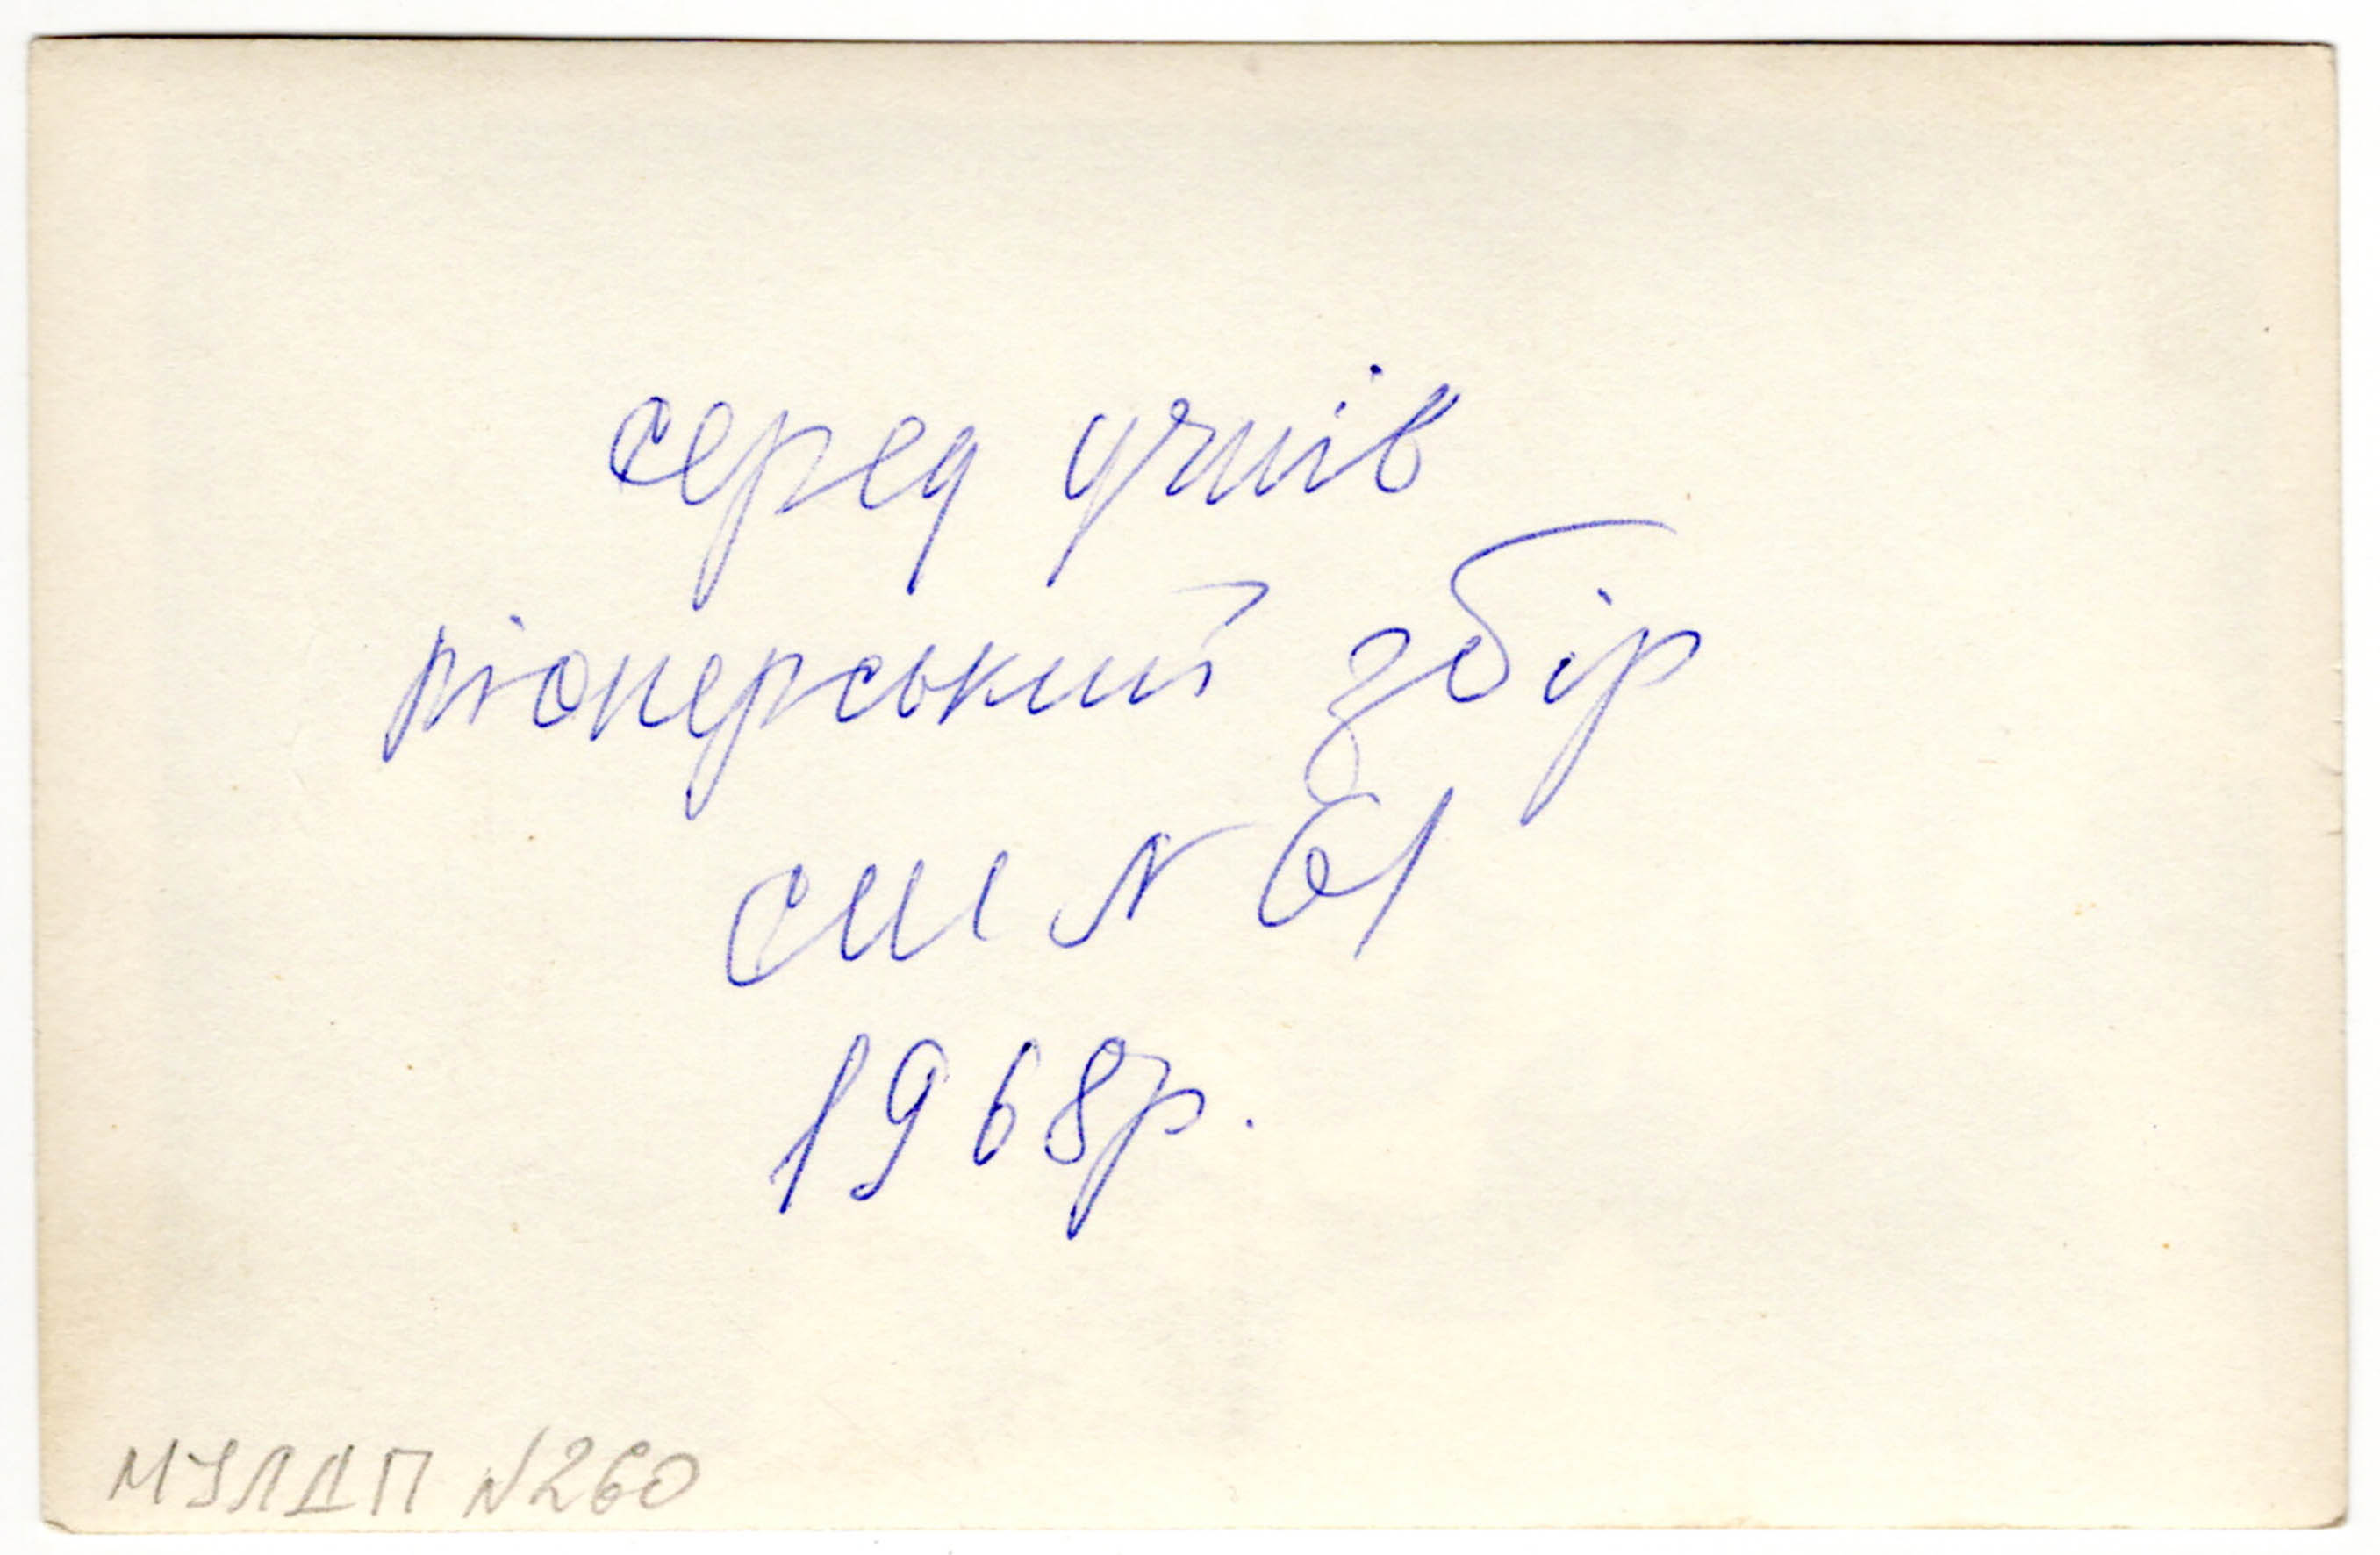 серед учнів
піонерський збір
СШ N 61
1968р.
МУЛДП N260